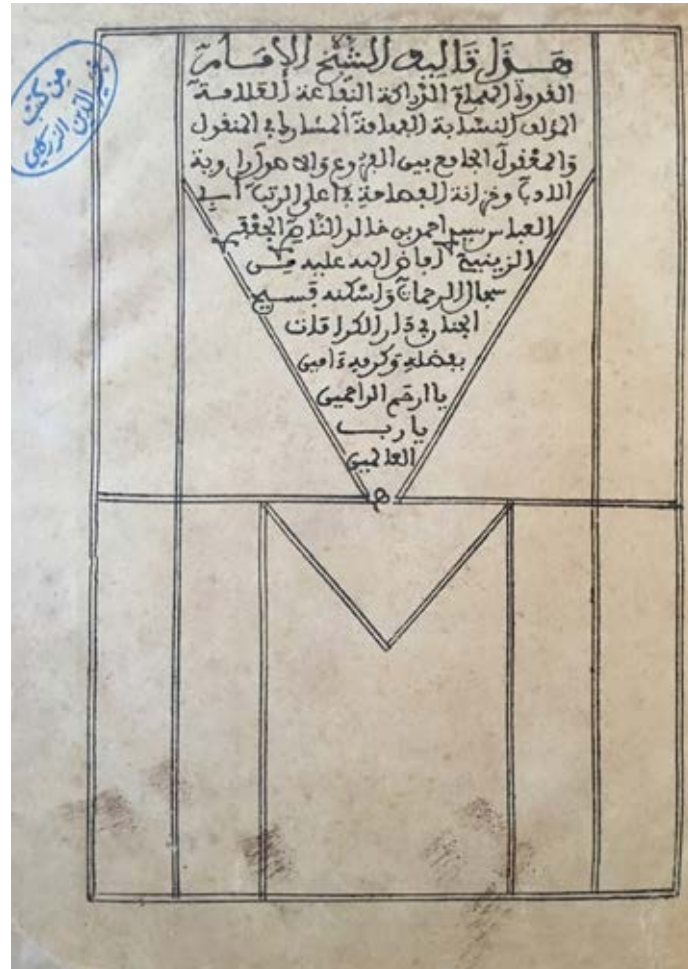 هَذَا تَالِيف الشَّيْخ الإِمَام
القدوة الهمام الدراكة النفاعة العلامة
المؤلف النسابة الفهامة المشارك في المنقول
والمعقول الجامع بين الفروع والاصول راوية
الادبا وخزانة الفهامة في أعلى الرتبا أبي
العباس سيد احمد بن خالد الناصري الجعفري
الزينبي افاض الله عليه من
سجال الرحمات وأسكنه فسيح
الجنان في دار الكرامات
بفضله وكرمه ءامين
يا ارحم الراحمين
يا رب
العالمين
ه
من كتب
خير الدين الزركلي